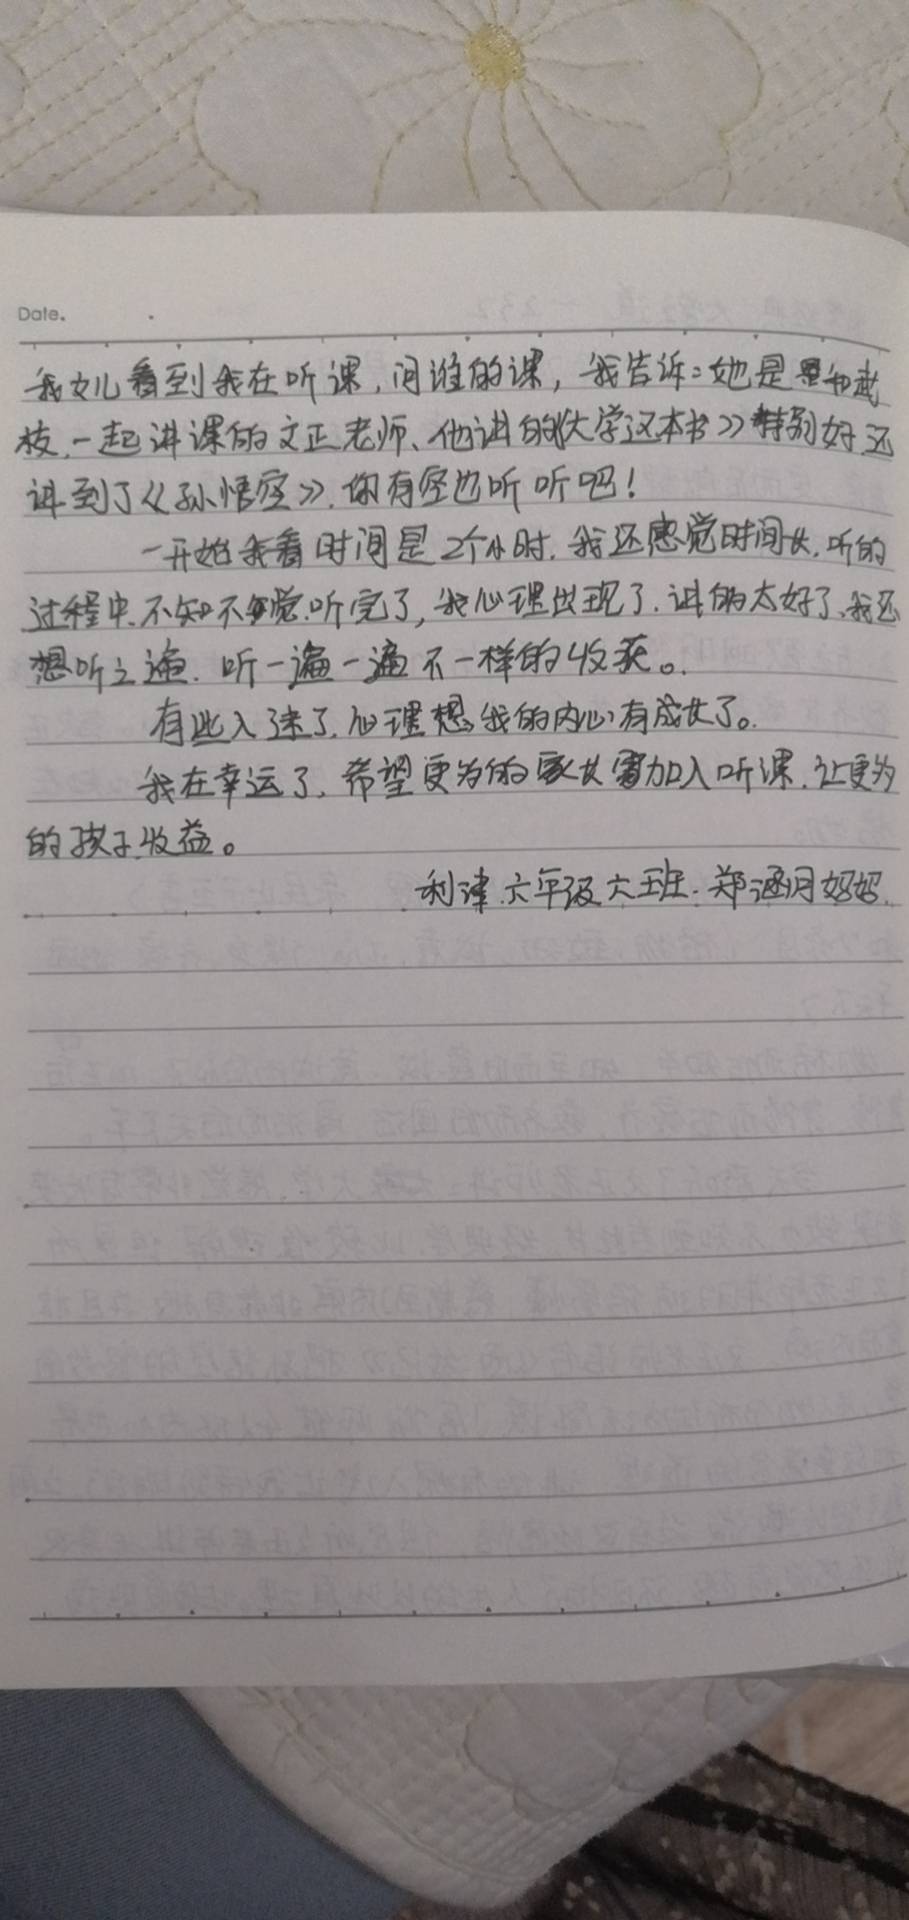 Date.
我女儿看到我在听课,问谁的课,我告诉:她是和武
校.一起讲课的文正老师、他讲的《大学这本书》》特别好还
讲到了《孙悟空》.你有空也听听吧!
一开始我看时间是2个小时.我还感觉时间长.听的
过程中.不知不觉.听完了,我心理出现了.讲的太好了.我还
想听2遍.听一遍一遍不一样的收获。
有些入迷了.心理想.我的内心有成长了。
我在幸运了.希望更为的家长需加入听课.让更为
的孩子.收益。
利津.六年级六班.郑涵月妈妈.